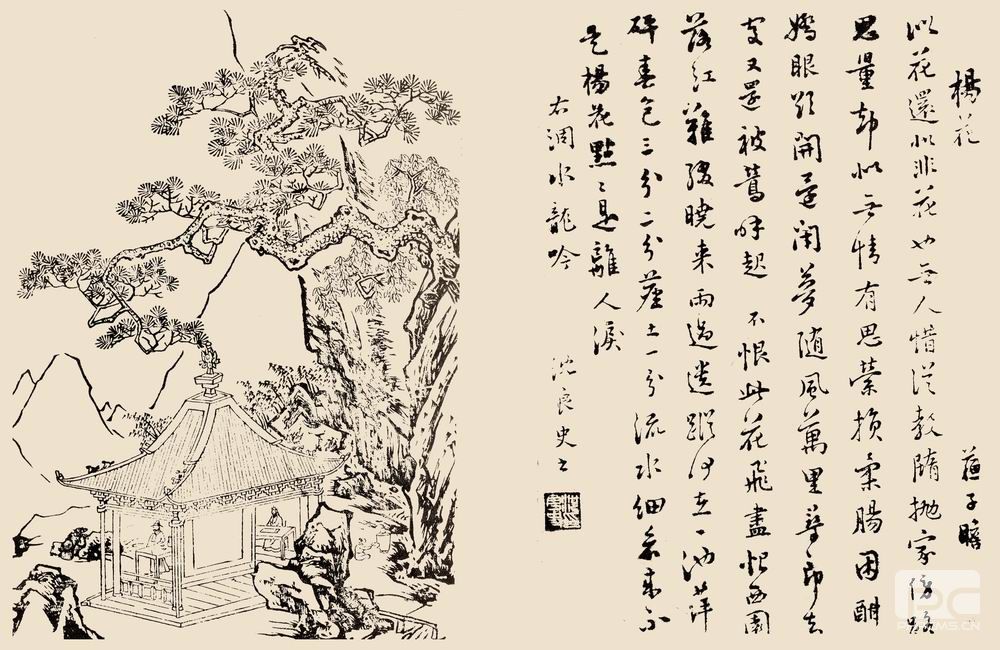 楊花　蘇子瞻
似花還似非花也无人惜從教隋拋家傍路
思量却似无情有思縈損柔腸困酣
嬌眼欲開還閉夢隨風萬里尋郎去
處又還被鶯呼起不恨此花飛盡恨西園
落紅難綴曉來雨過遺蹤何在一池萍
碎春色三分二分塵土一分流水細看來不
是楊花點〻是離人淚
右調水龍吟
沈良史